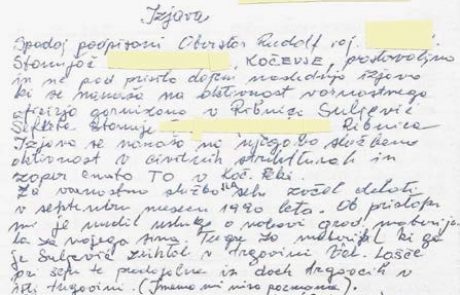 Izjava
Spodaj podpisani Oberstar Rudolf roj.
Stanujoč KOČEVJE, prostovoljno
in ne pod prisilo dajem naslednjo izjavo
ki se nanaša na aktivnost varnostnega
oficirja garnizona v Ribnici Suljević
Šefketa stanuje Ribnica
Izjava se nanaša na njegovo službeno
aktivnost v civilnih strukturah in
zoper enoto TO v Koč. Reki.
Za varnostno službo sem začel delati
v septembru mesecu 1990 leta. Ob pristopu
mi je nudil usluge o nabavi grad. materija
la za mojega sina. Tega materijal ki ga
je Suljević v trgovini Vel. Lašče
pri šefu te prodajalne in dveh trgovcih v
isti trgovini. (Imena mi niso poznana).